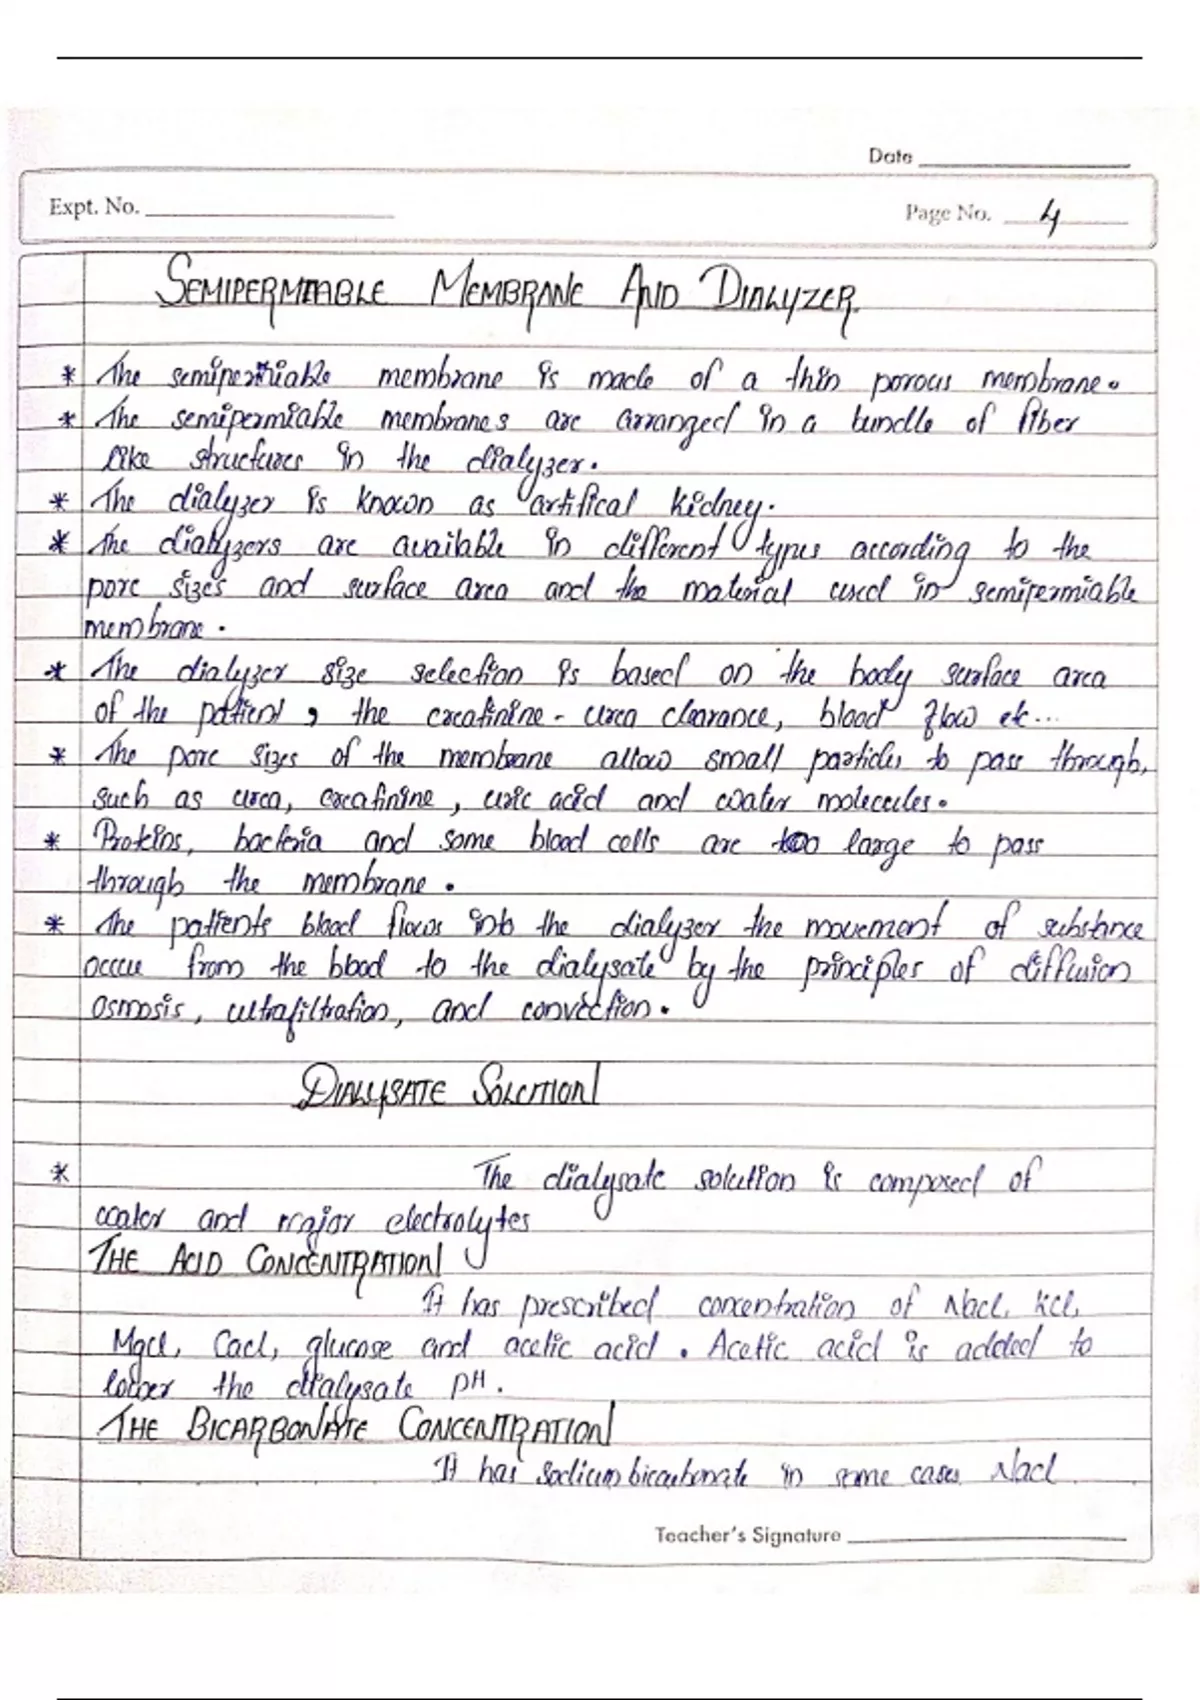 Date
Expt. No.
Page No. 4
SEMIPERMIABLE MEMBRANE AND DIALYZER.
* The semipermiable membrane is made of a thin porous membrane.
* The semipermiable membranes are arranged in a bundle of fiber
like structures in the dialyzer.
* The dialyzer is known as artifical kidney.
* The dialyzers are available in different types according to the
pore sizes and surface area and the material used in semipermiable
membrane.
* The dialyzer size selection is based on the body surface area
of the patient, the creatinine - urea clearance, blood flow etc...
* The pore sizes of the membrane allow small particles to pass through,
such as urea, creatinine, uric acid and water molecules.
* Proteins, bacteria and some blood cells are too large to pass
through the membrane.
* The patients blood flows into the dialyzer the movement of substance
occur from the blood to the dialysate by the principles of diffusion
osmosis, ultrafiltration, and convection.
DIALYSATE SOLUTION
* The dialysate solution is composed of
water and major electrolytes
THE ACID CONCENTRATION
It has prescribed concentration of Nacl, Kcl,
Mgcl, Cacl, glucose and acetic acid. Acetic acid is added to
lower the dialysate pH.
THE BICARBONATE CONCENTRATION
It has sodium bicarbonate in some cases Nacl
Teacher's Signature